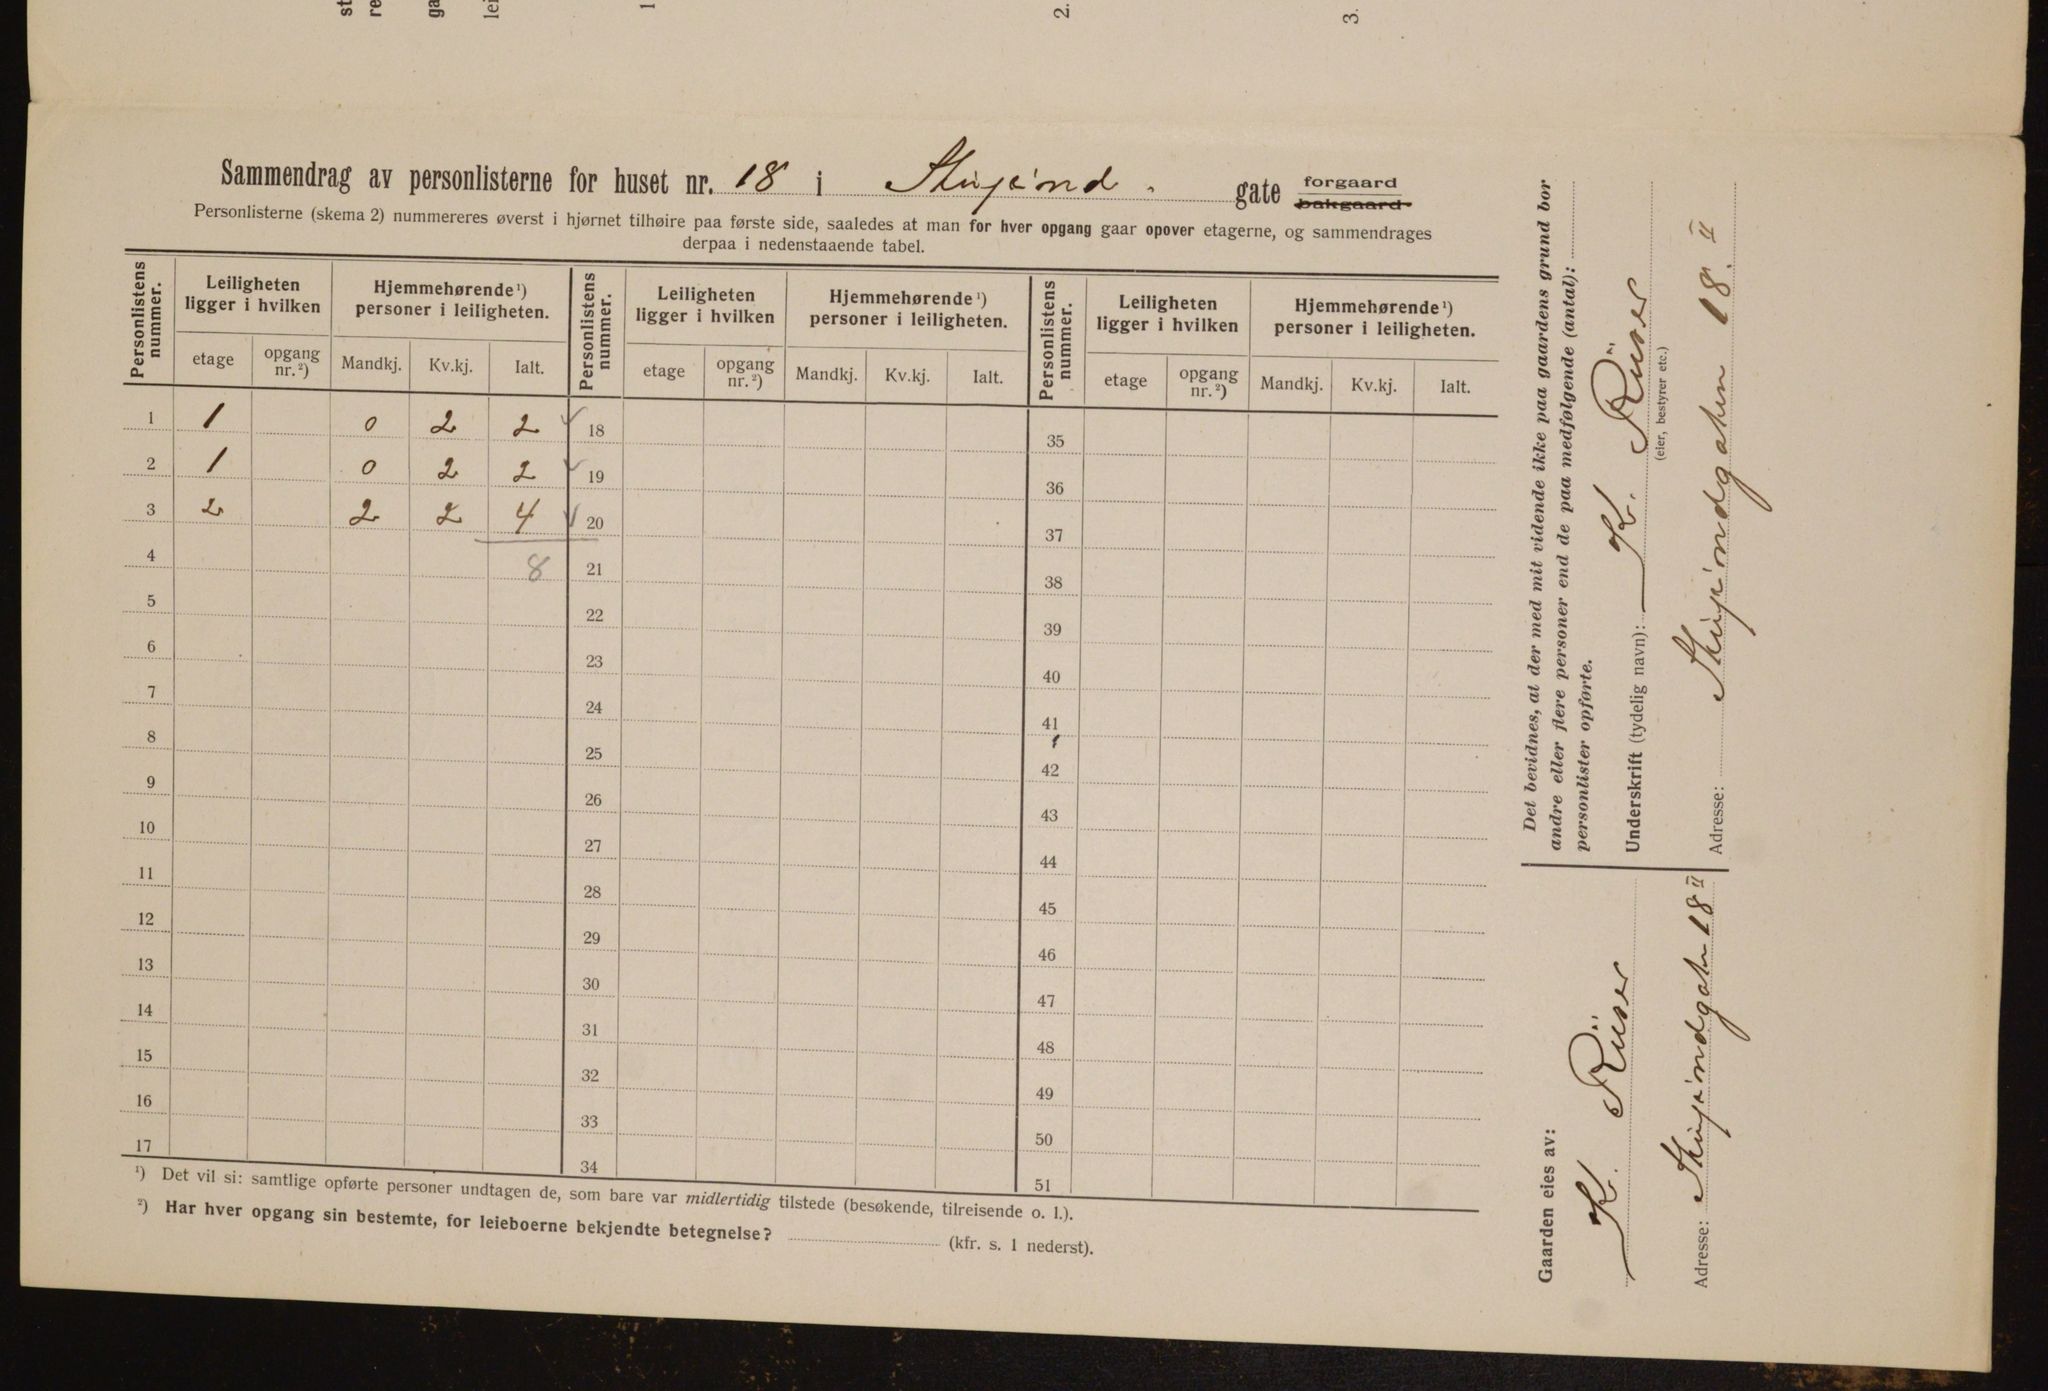 st
re
ga
lei
1
2.
3.
Sammendrag av personlisterne for huset nr. 18 i Skujind. gate forgaard bakgaard
Personlisterne (skema 2) nummereres øverst i hjørnet tilhøire paa første side, saaledes at man for hver opgang gaar opover etagerne, og sammendrages
derpaa i nedenstaaende tabel.
Personlistens nummer. Leiligheten ligger i hvilken Hjemmehørende ¹) personer i leiligheten. Personlistens nummer. Leiligheten ligger i hvilken Hjemmehørende ¹) personer i leiligheten. Personlistens nummer. Leiligheten ligger i hvilken Hjemmehørende ¹) personer i leiligheten.
etage opgang nr. ²) Mandkj. Kv.kj. Ialt. etage opgang nr. ²) Mandkj. Kv.kj. Ialt. etage opgang nr. ²) Mandkj. Kv.kj. Ialt.
1 1 0 2 2 ✓ 18 35
2 1 0 2 2 ✓ 19 36
3 2 2 2 4 ✓ 20 37
4 8 21 38
5 22 39
6 23 40
7 24 41
8 25 42
9 26 43
10 27 44
11 28 45
12 29 46
13 30 47
14 31 48
15 32 49
16 33 50
17 34 51
¹) Det vil si: samtlige opførte personer undtagen de, som bare var midlertidig tilstede (besøkende, tilreisende o. l.).
²) Har hver opgang sin bestemte, for leieboerne bekjendte betegnelse? (kfr. s. 1 nederst).
Det bevidnes, at der med mit vidende ikke paa gaardens grund bor
andre eller flere personer end de paa medfølgende (antal):
personlister opførte.
Underskrift (tydelig navn): K. Rüser
(eier, bestyrer etc.)
Adresse: 18. II
Gaarden eies av:
K. Rüser
Adresse: 18 II